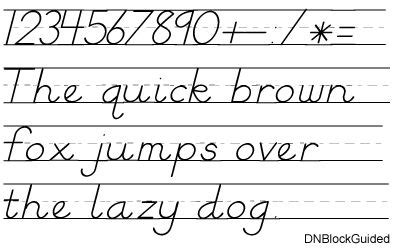 1234567890+-:/*=
The quick brown
fox jumps over
the lazy dog.
DNBlockGuided